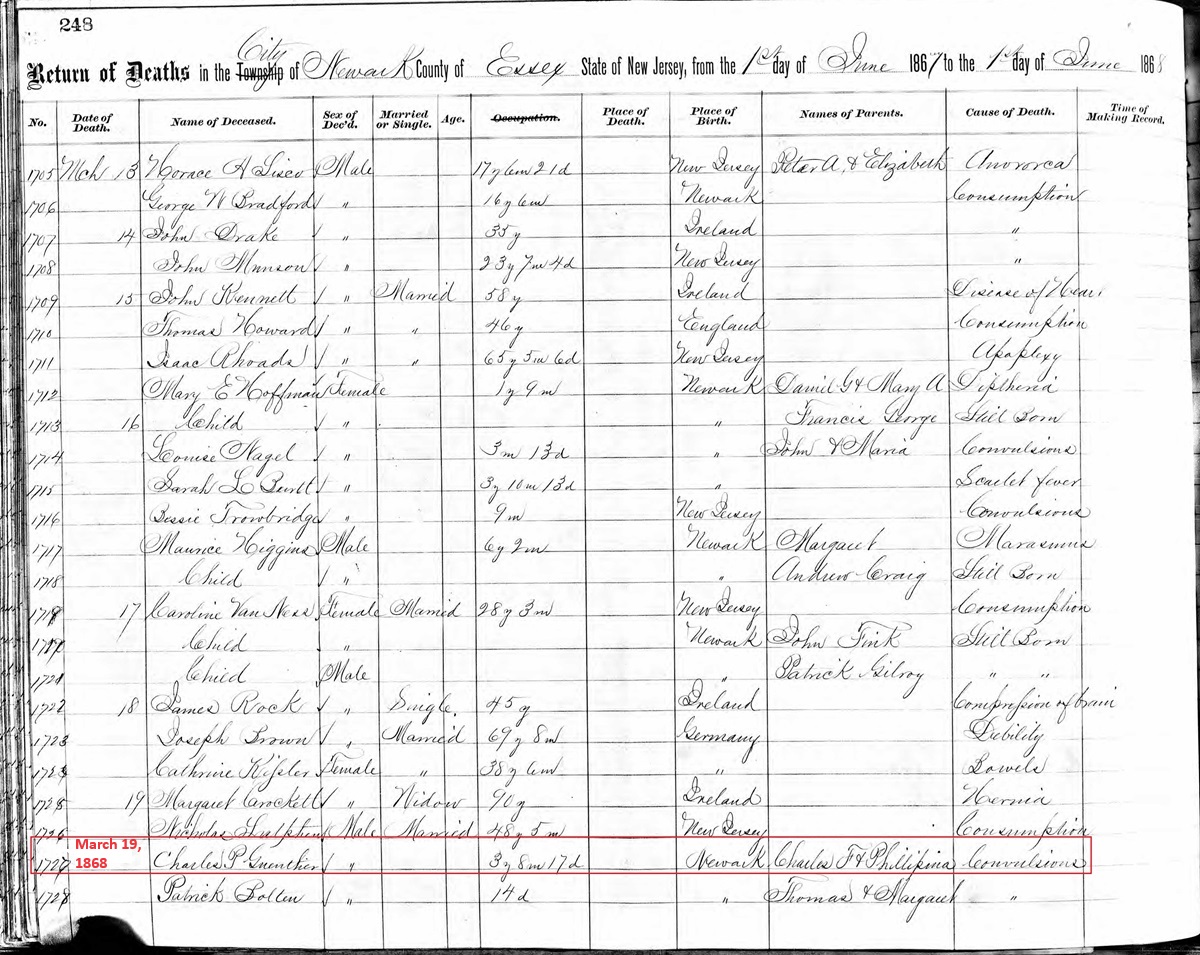 248
Return of Deaths in the Township City of Newark County of Essex State of New Jersey, from the 1st day of June 1867 to the 1st day of June 1868
No. Date of Death. Name of Deceased. Sex of Dec'd. Married or Single. Age. Occupation. Place of Death. Place of Birth. Names of Parents. Cause of Death. Time of Making Record.
1705 Mch 13 Horace A Sisco Male 17y 6m 21d New Jersey Peter A, & Elizabeth
1706 George W Bradford " 16y 6m Newark Consumption
1707 14 John Drake " 35y Ireland "
1708 John Munson " 23y 7m 4d New Jersey "
1709 15 John Kennett " Married 58y Ireland Disease of Hear
1710 Thomas Howard " " 46y England Consumption
1711 Isaac Rhoads " " 65y 5m 6d New Jersey Apaplexy
1712 Mary E Hoffman Female 1y 9m Newark Daniel G & Mary A Diptheria
1713 16 Child " " Francis George Still Born
1714 Louise Nagel " 3m 13d " John & Maria Convulsions
1715 Sarah L " 3y 10m 13d " Scarlet fever
1716 Bessie Trowbridge " 9m New Jersey Convulsions
1717 Maurice Higgins Male 6y 2m Newark Margaret Marasmus
1718 Child " " Andrew Craig Still Born
17 Caroline Van Ness Female Married 28y 3m New Jersey Consumption
Child " Newark John Fink Still Born
1721 Child Male " Patrick Gilroy " "
1722 18 James Rock " Single. 45y Ireland Compression of brain
1723 Joseph Brown " Married 69y 8m Germany Debility
1724 Cathrine Kissler Female " 38y 6m " Bowels
1725 19 Margaret Crockett " Widow 90y Ireland Hernia
1726 Nicholas Male Married 48y 5m New Jersey Consumption
1727 March 19, 1868 Charles P. Guenther " 3y 8m 17d Newark Charles F & Phillipina Convulsions
1728 Patrick Bolten " 14d " Thomas & Margaret "